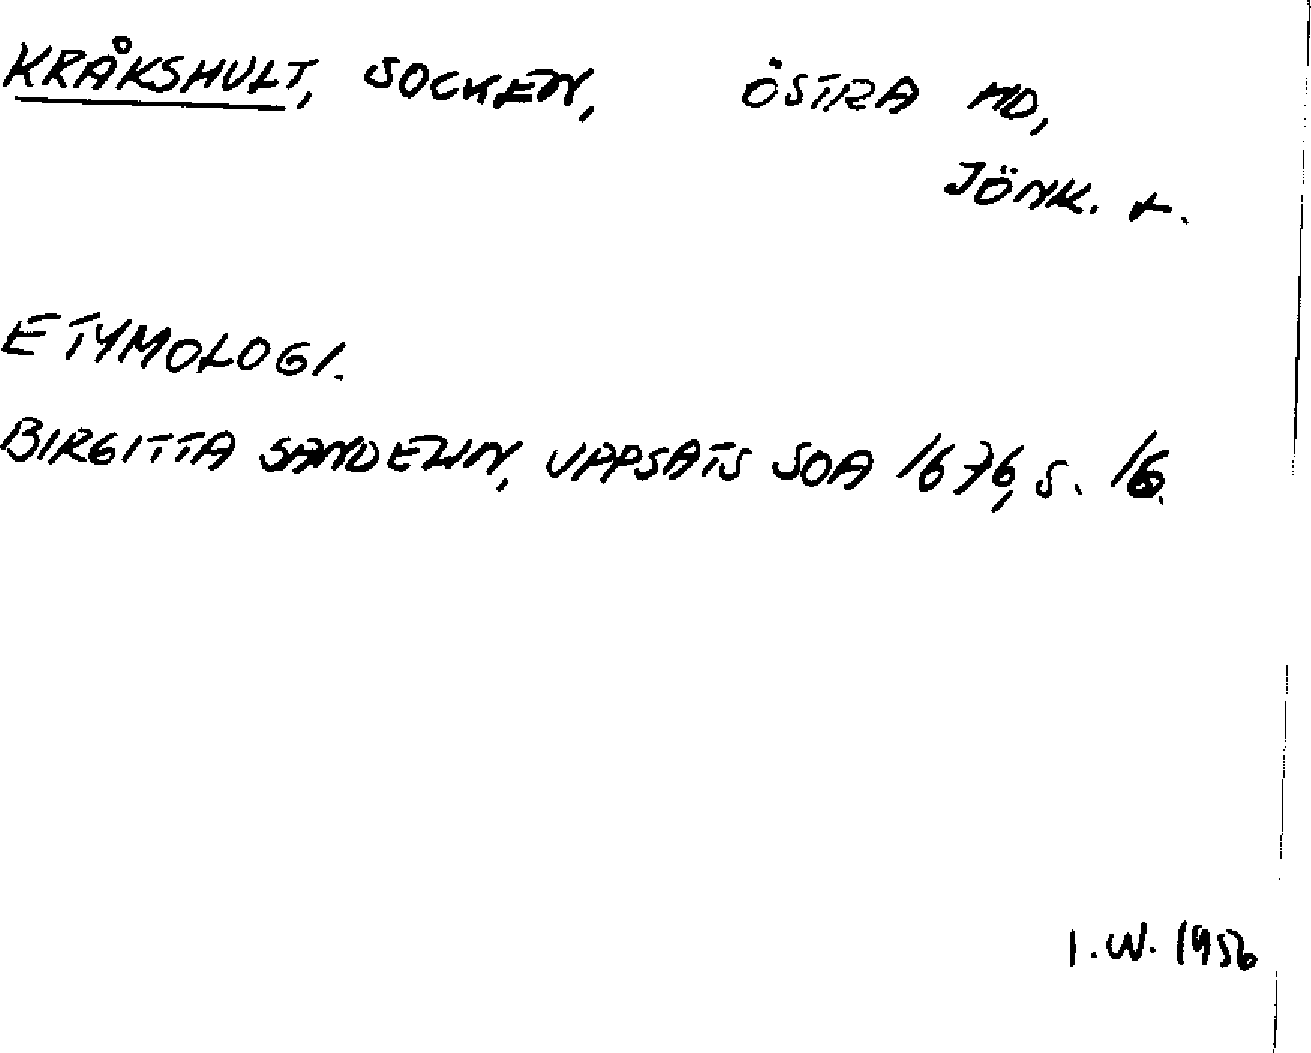 KRÅKSHULT, SOCKEN, ÖSTRA HD,
JÖNK. L.
ETYMOLOGI.
BIRGITTA SANDELIN, UPPSATS SOA 1676, S. 16.
I.W. 1956